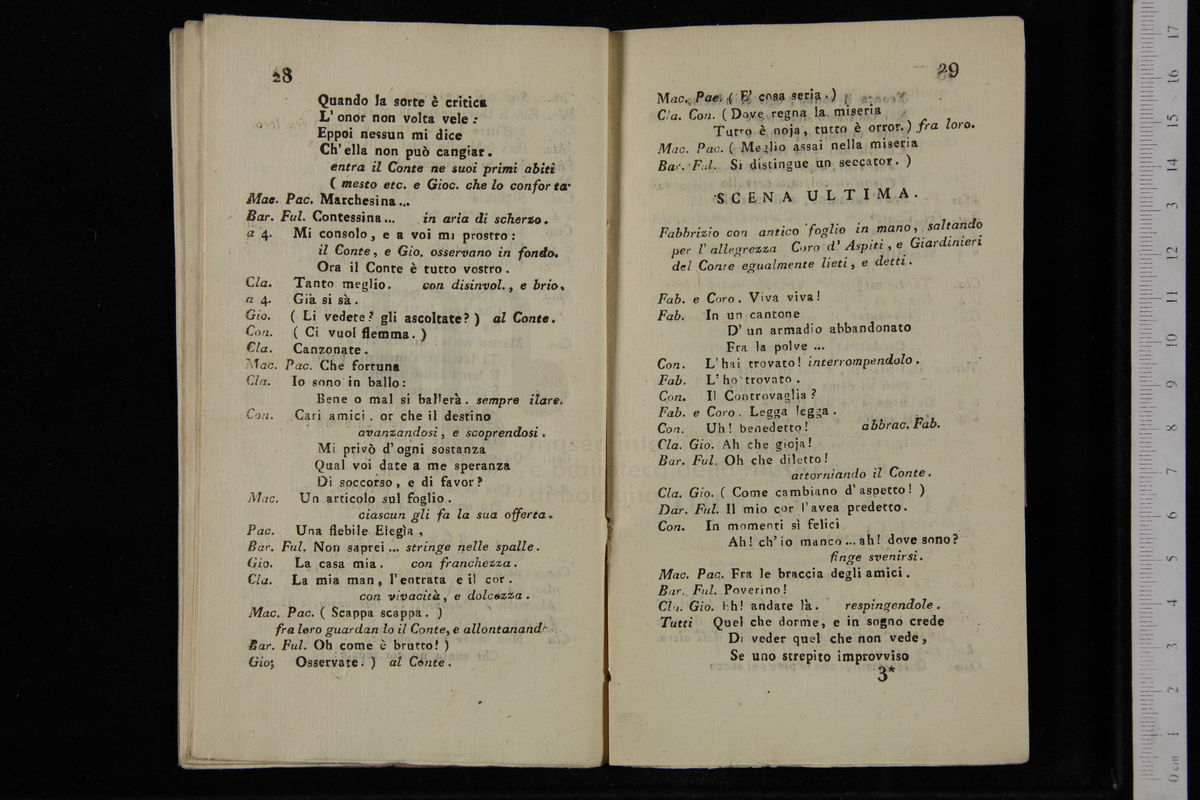 28
Quando la sorte è critica
L' onor non volta vele :
Eppoi nessun mi dice
Ch' ella non può cangiar .
entra il Conte ne suoi primi abiti
( mesto etc. e Gioc. che lo conforta
Mac. Pac. Marchesina ...
Bar. Ful. Contessina ... in aria di scherzo .
a 4. Mi consolo , e a voi mi prostro :
il Conte , e Gio. osservano in fondo .
Ora il Conte è tutto vostro .
Cla. Tanto meglio . con disinvol. , e brio .
a 4. Già si sà .
Gio. ( Li vedete ? gli ascoltate ? ) al Conte .
Con. ( Ci vuol flemma . )
Cla. Canzonate .
Mac. Pac. Che fortuna
Cla. Io sono in ballo :
Bene o mal si ballerà . sempre ilare .
Con. Cari amici . or che il destino
avanzandosi , e scoprendosi .
Mi privò d' ogni sostanza
Qual voi date a me speranza
Di soccorso , e di favor ?
Mac. Un articolo sul foglio .
ciascun gli fa la sua offerta .
Pac. Una flebile Elegìa ,
Bar. Ful. Non saprei ... stringe nelle spalle .
Gio. La casa mia . con franchezza .
Cla. La mia man , l' entrata e il cor .
con vivacità , e dolcezza .
Mac. Pac. ( Scappa scappa . )
fra loro guardan lo il Conte , e allontanand
Bar. Ful. Oh come è brutto ! )
Gio; Osservate . ) al Conte .
29
Mac. Pae. ( E' cosa seria . )
Cla. Con. ( Dove regna la miseria
Tutto è noja , tutto è orror . ) fra loro .
Mac. Pac. ( Meglio assai nella miseria
Bar. Ful. Si distingue un seccator . )
SCENA ULTIMA .
Fabbrizio con antico foglio in mano , saltando
per l' allegrezza Coro d' Aspiti , e Giardinieri
del Conte egualmente lieti , e detti .
Fab. e Coro . Viva viva !
Fab. In un cantone
D' un armadio abbandonato
Fra la polve ...
Con. L' hai trovato ! interrompendolo .
Fab. L' ho trovato .
Con. Il Controvaglia ?
Fab. e Coro . Legga legga .
Con. Uh ! benedetto ! abbrac. Fab.
Cla. Gio. Ah che gioja !
Bar. Ful. Oh che diletto !
attorniando il Conte .
Cla. Gio. ( Come cambiano d' aspetto ! )
Dar. Ful. Il mio cor l' avea predetto .
Con. In momenti sì felici
Ah ! ch' io manco ... ah ! dove sono ?
finge svenirsi .
Mac. Pac. Fra le braccia degli amici .
Bar. Ful. Poverino !
Cla. Gio. Eh ! andate là . respingendole .
Tutti Quel che dorme , e in sogno crede
Di veder quel che non vede ,
Se uno strepito improvviso
3*